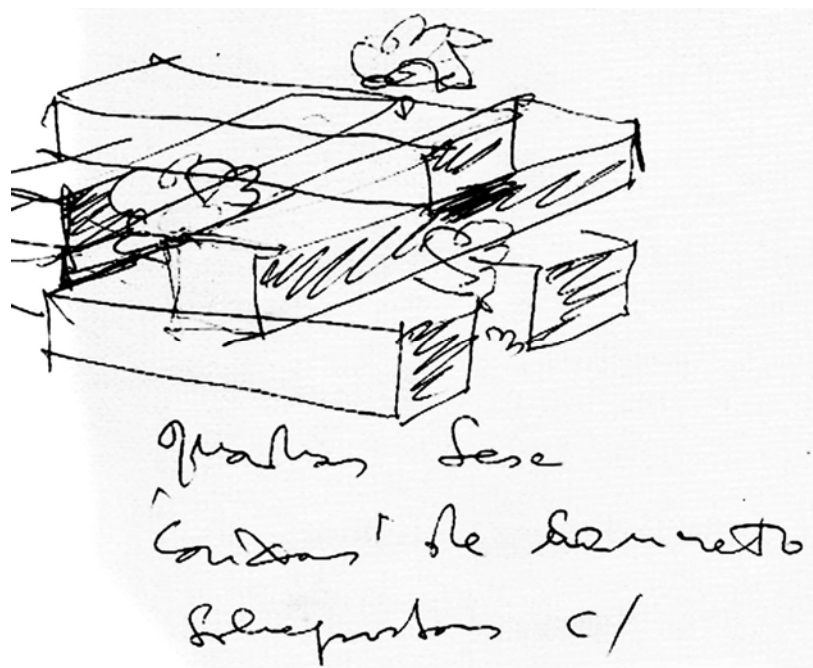 quadras Sesc
"caixas" de concreto
sobrepostas c/